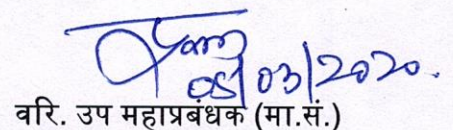 05/03/2020.
वरि. उप महाप्रबंधक (मा.सं.)